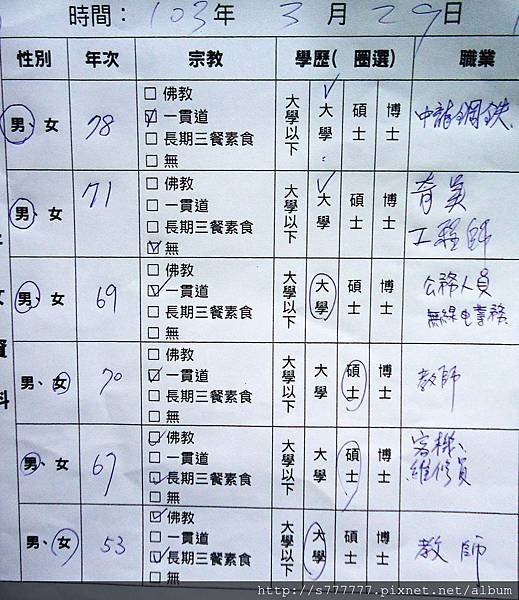 時間：103年 3 月 29日
性別 年次 宗教 學歷( 圈選) 職業
男、女 78 □ 佛教 大學以下 大學 碩士 博士 中龍鋼鐵
☑ 一貫道
□ 長期三餐素食
□ 無
男、女 71 □ 佛教 大學以下 大學 碩士 博士
□ 一貫道 工程師
□ 長期三餐素食
☑ 無
男、女 69 □ 佛教 大學以下 大學 碩士 博士 公務人員
☑ 一貫道 無線电業務
□ 長期三餐素食
□ 無
男、女 70 □ 佛教 大學以下 大學 碩士 博士 教師
☑ 一貫道
□ 長期三餐素食
□ 無
男、女 67 ☑ 佛教 大學以下 大學 碩士 博士 客機、
□ 一貫道 維修員
☑ 長期三餐素食
□ 無
男、女 53 ☑ 佛教 大學以下 大學 碩士 博士 教師
□ 一貫道
☑ 長期三餐素食
□ 無
資
料
http://s777777.pixnet.net/album